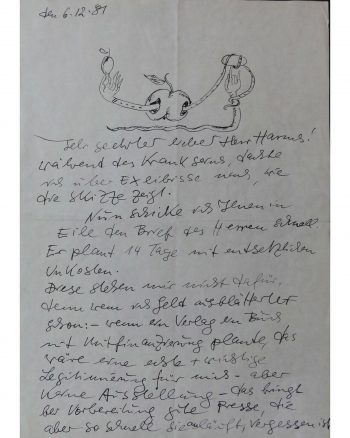 den 6.12.81
Sehr geehrter lieber Herr Harms!
während des Krankseins, dachte
ich über Exlibrisse nach, wie
die Skizze zeigt.
Nun schicke ich Ihnen in
Eile den Brief des Herren Schnell
Er plant 14 Tage mit entsetzlichen
Unkosten.
Diese stehen mir nicht dafür,
denn wenn ich Geld ausblätterte
schon: – wenn ein Verlag ein Buch
mit Mitfinanzierung plante, das
wäre eine echte + wichtige
Legitimierung für mich – aber
keine Ausstellung – das bringt
bei Vorbereitung gute Presse, die
aber so schnell vergessen ist